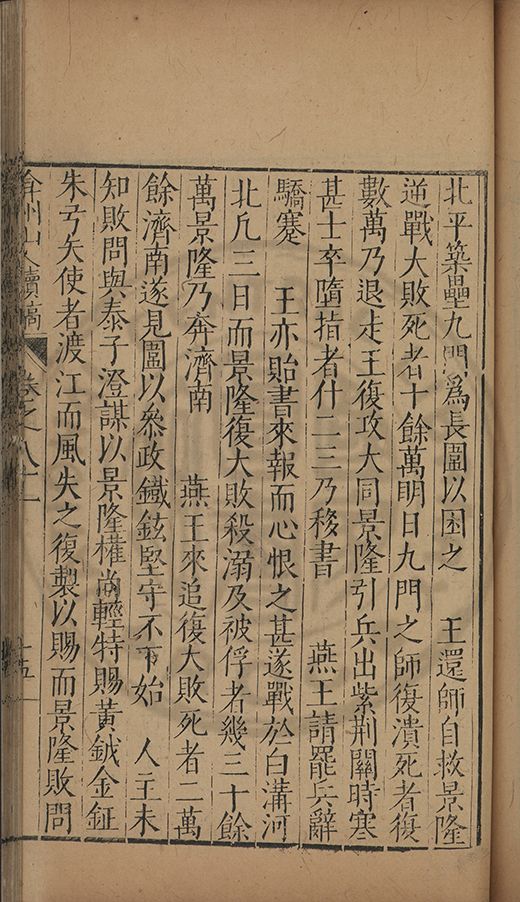 北平築壘九門爲長圍以困之　王還師自救景隆
逆戰大敗死者十餘萬明日九門之師復潰死者復
數萬乃退走王復攻大同景隆引兵出紫荆關時寒
甚士卒墮指者什二三乃移書　燕王請罷兵辭
驕蹇　王亦貽書來報而心恨之甚遂戰於白溝河
北凡三日而景隆復大敗殺溺及被俘者幾三十餘
萬景隆乃奔濟南　燕王來追復大敗死者二萬
餘濟南遂見圍以叅政鐵鉉堅守不下始　人主未
知敗問與泰子澄謀以景隆權尚輕特賜黃鉞金鉦
朱弓矢使者渡江而風失之復製以賜而景隆敗問
弇州山人續稿　卷之八十　十五